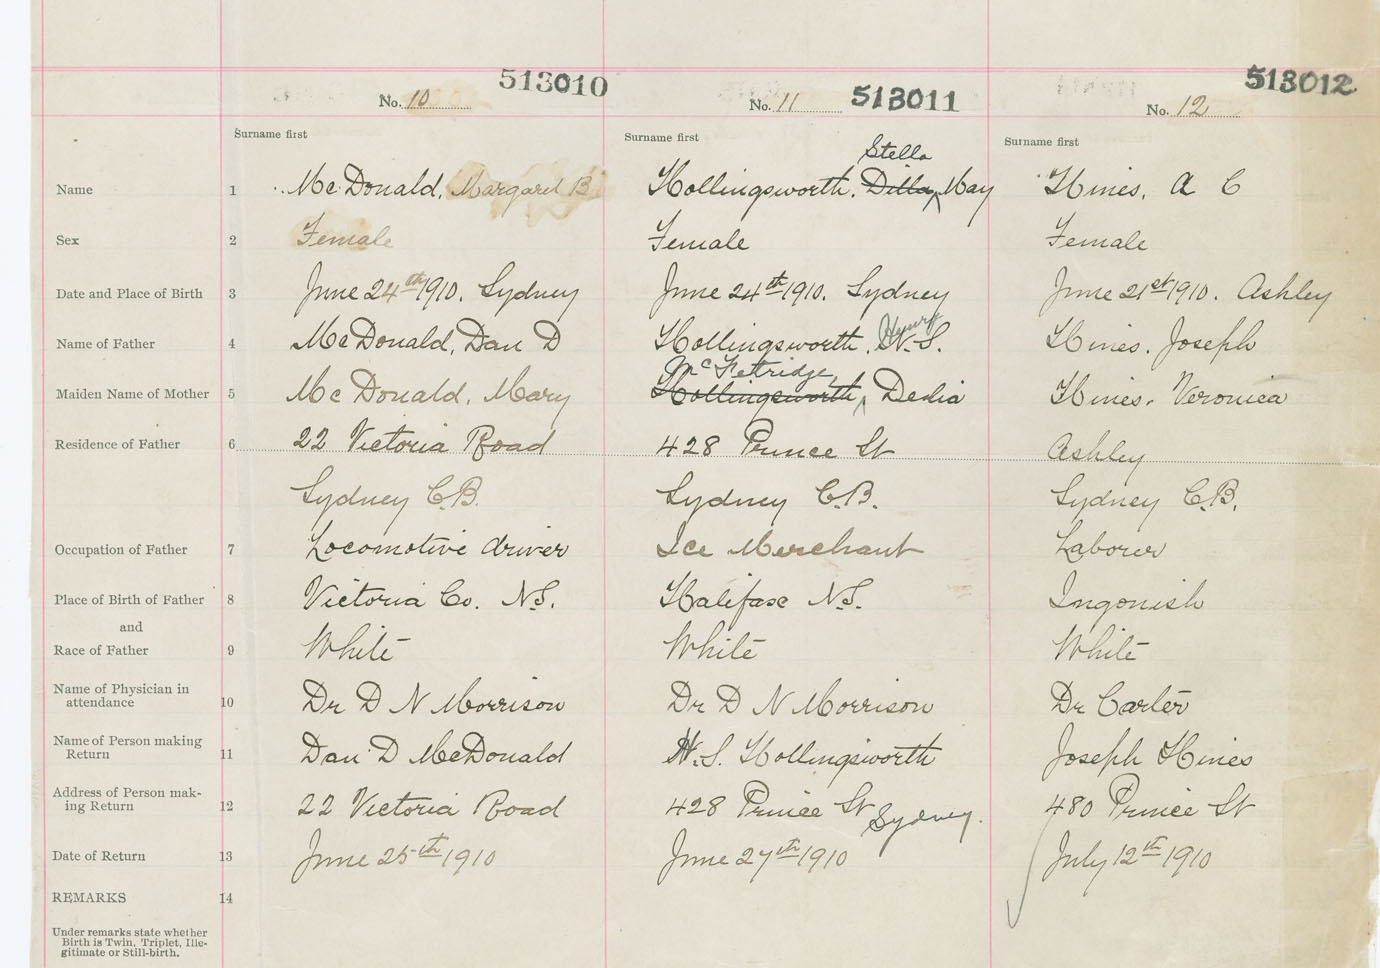 513010 513011 513012
No. 10 No. 11 No. 12
Surname first Surname first Surname first
Stella
Name 1 McDonald, Margaret B Hollingsworth, Dilla May Hines, A C
Sex 2 Female Female Female
Date and Place of Birth 3 June 24th 1910. Sydney June 24th 1910. Sydney June 21st 1910. Ashley
Henry
Name of Father 4 McDonald, Dan D Hollingsworth, H. S. Hines. Joseph
McFetridge
Maiden Name of Mother 5 McDonald, Mary Hollingsworth, Delia Hines. Veronica
Residence of Father 6 22 Victoria Road 428 Prince St Ashley
Sydney C.B. Sydney C.B. Sydney C.B.
Occupation of Father 7 Locomotive driver Ice Merchant Laborer
Place of Birth of Father 8 Victoria Co. N.S. Halifax N.S. Ingonish
and
Race of Father 9 White White White
Name of Physician in
attendance 10 Dr D N Morrison Dr D N Morrison Dr Carter
Name of Person making
Return 11 Dan D McDonald H. S. Hollingsworth Joseph Hines
Address of Person mak-
ing Return 12 22 Victoria Road 428 Prince St Sydney. 480 Prince St
Date of Return 13 June 25th 1910 June 27th 1910 July 12th 1910
REMARKS 14
Under remarks state whether
Birth is Twin, Triplet, Ille-
gitimate or Still-birth.